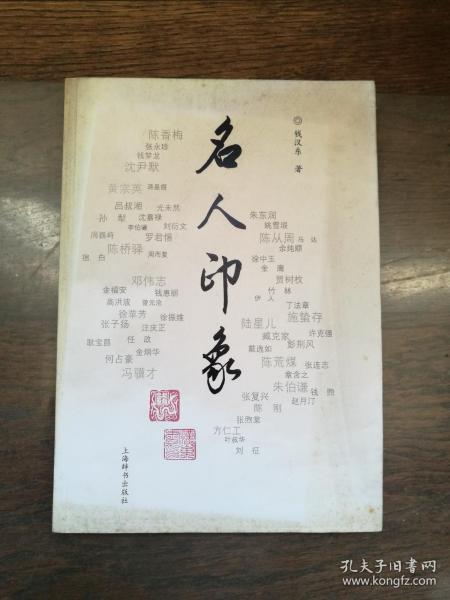 名人印象
◎钱汉东 著
陈香梅
张永珍
钱梦龙
沈尹默
黄宗英
吕叔湘 尤未然
孙犁 沈嘉禄
李伯谦 刘衍文
罗君惕
陈桥驿 周而复
宿白
邓伟志
金福安 钱惠丽
高洪波 曾元沧
徐苹芳 徐振维
张子扬 汪庆正
耿宝昌 任政
金炳华
何占豪
冯骥才
朱东润
姚雪垠
陈从周 马达
余纯顺
徐中玉
金庸
贾树枚
竹林
伊人
丁法章
施蛰存
陆星儿
臧克家 许克强
彭荆风
戴逸如
陈荒煤 张连志
章含之
朱伯谦 钱煦
张复兴 赵月汀
陈刚
张煦棠
方仁工
叶叔华
刘征
上海辞书出版社
孔夫子旧书网
www.kongfz.com